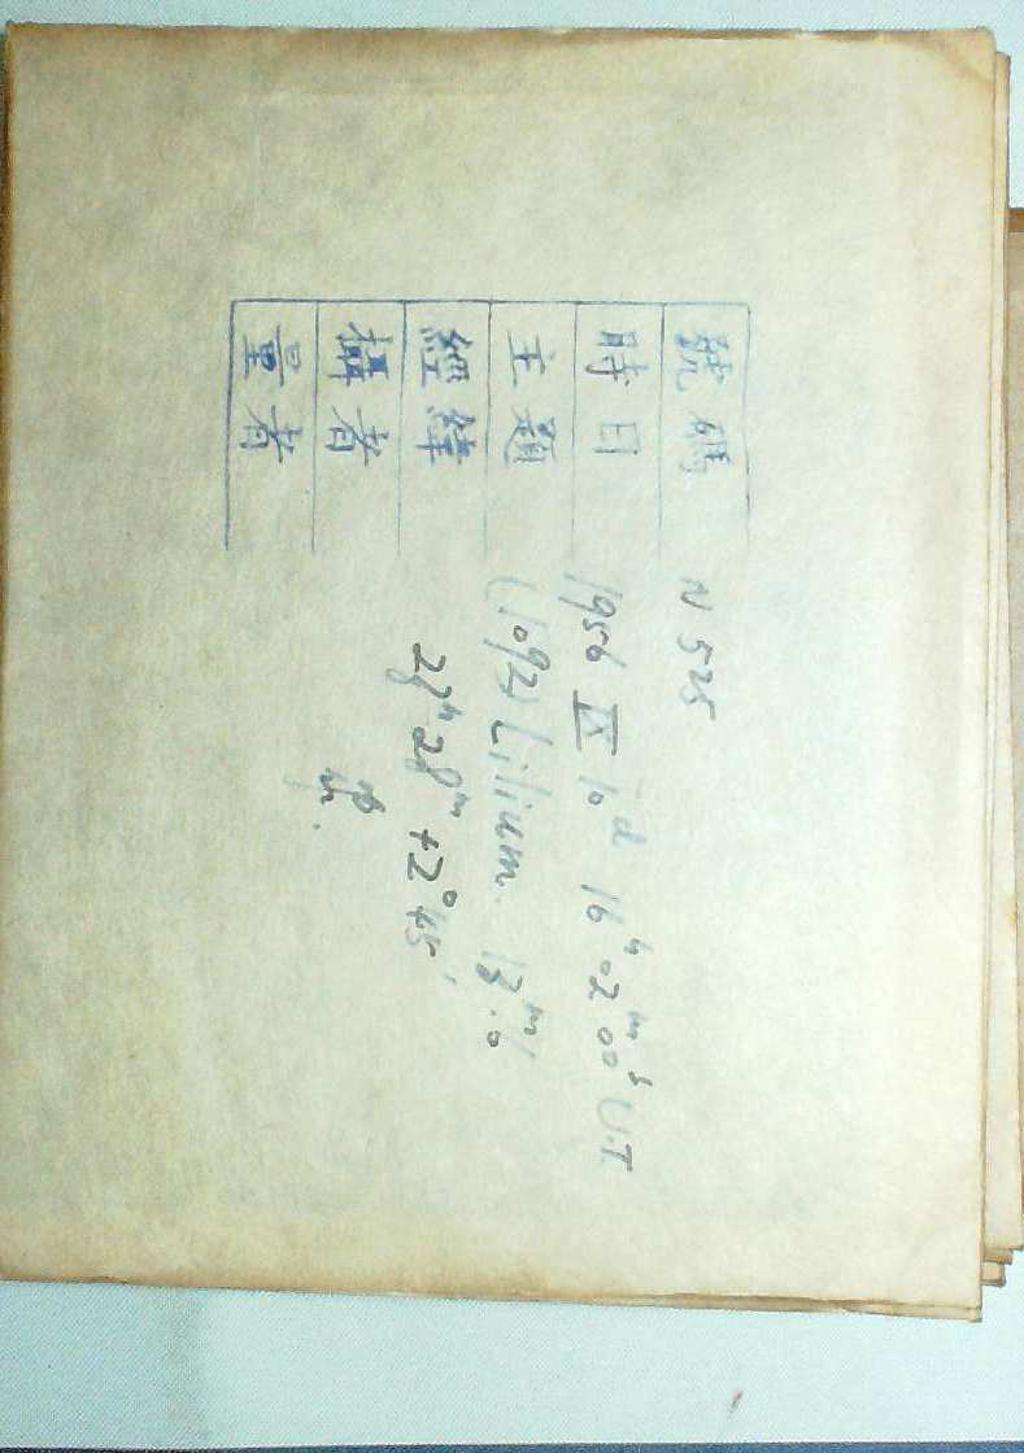 號碼 N 525
時日 1956 IX 10ᵈ 16ʰ02ᵐ00ˢ U.T.
主題 (1092) Lilium. 13ᵐ.0
經緯 23ʰ28ᵐ +2°45′
攝者
量者